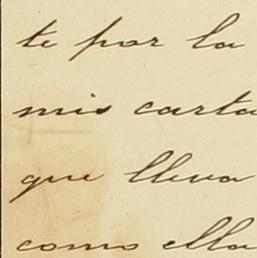 te por la
mis carta
que lleva
como ella